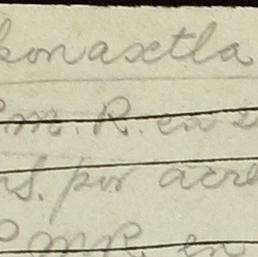 konaxetla
P.M.R. en 2
rs. por acre
P MR. en